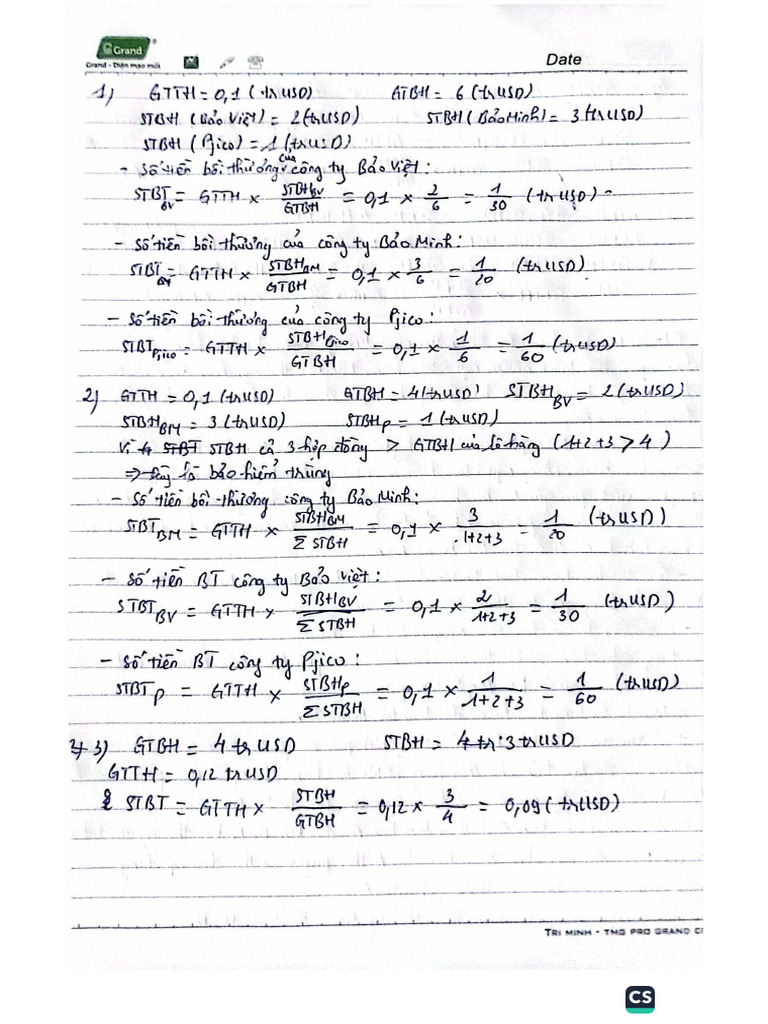 Grand
Grand - Diện mạo mới
Date
1) GTTH = 0,1 (trUSD) GTBH = 6 (trUSD)
STBH (Bảo Việt) = 2 (trUSD) STBH (Bảo Minh) = 3 (trUSD)
STBH (Pjico) = 1 (trUSD)
- Số tiền bồi thường của công ty Bảo Việt:
STBT_BV = GTTH × STBH_BV / GTBH = 0,1 × 2/6 = 1/30 (trUSD)
- Số tiền bồi thường của công ty Bảo Minh:
STBT = GTTH × STBH_BM / GTBH = 0,1 × 3/6 = 1/20 (trUSD)
- Số tiền bồi thường của công ty Pjico:
STBT_Pjico = GTTH × STBH_Pjico / GTBH = 0,1 × 1/6 = 1/60 (trUSD)
2) GTTH = 0,1 (trUSD) GTBH = 4 (trUSD) STBH_BV = 2 (trUSD)
STBH_BM = 3 (trUSD) STBH_P = 1 (trUSD)
Vì STBH cả 3 hợp đồng > GTBH của lô hàng (1+2+3 > 4)
=> Đây là bảo hiểm trùng
- Số tiền bồi thường công ty Bảo Minh:
STBT_BM = GTTH × STBH_BM / Σ STBH = 0,1 × 3/1+2+3 = 1/20 (trUSD)
- Số tiền BT công ty Bảo Việt:
STBT_BV = GTTH × STBH_BV / Σ STBH = 0,1 × 2/1+2+3 = 1/30 (trUSD)
- Số tiền BT công ty Pjico:
STBT_P = GTTH × STBH_P / Σ STBH = 0,1 × 1/1+2+3 = 1/60 (trUSD)
3) GTBH = 4 trUSD STBH = 3 trUSD
GTTH = 0,12 trUSD
STBT = GTTH × STBH / GTBH = 0,12 × 3/4 = 0,09 (trUSD)
TRI MINH - TMG PRO GRAND
CS